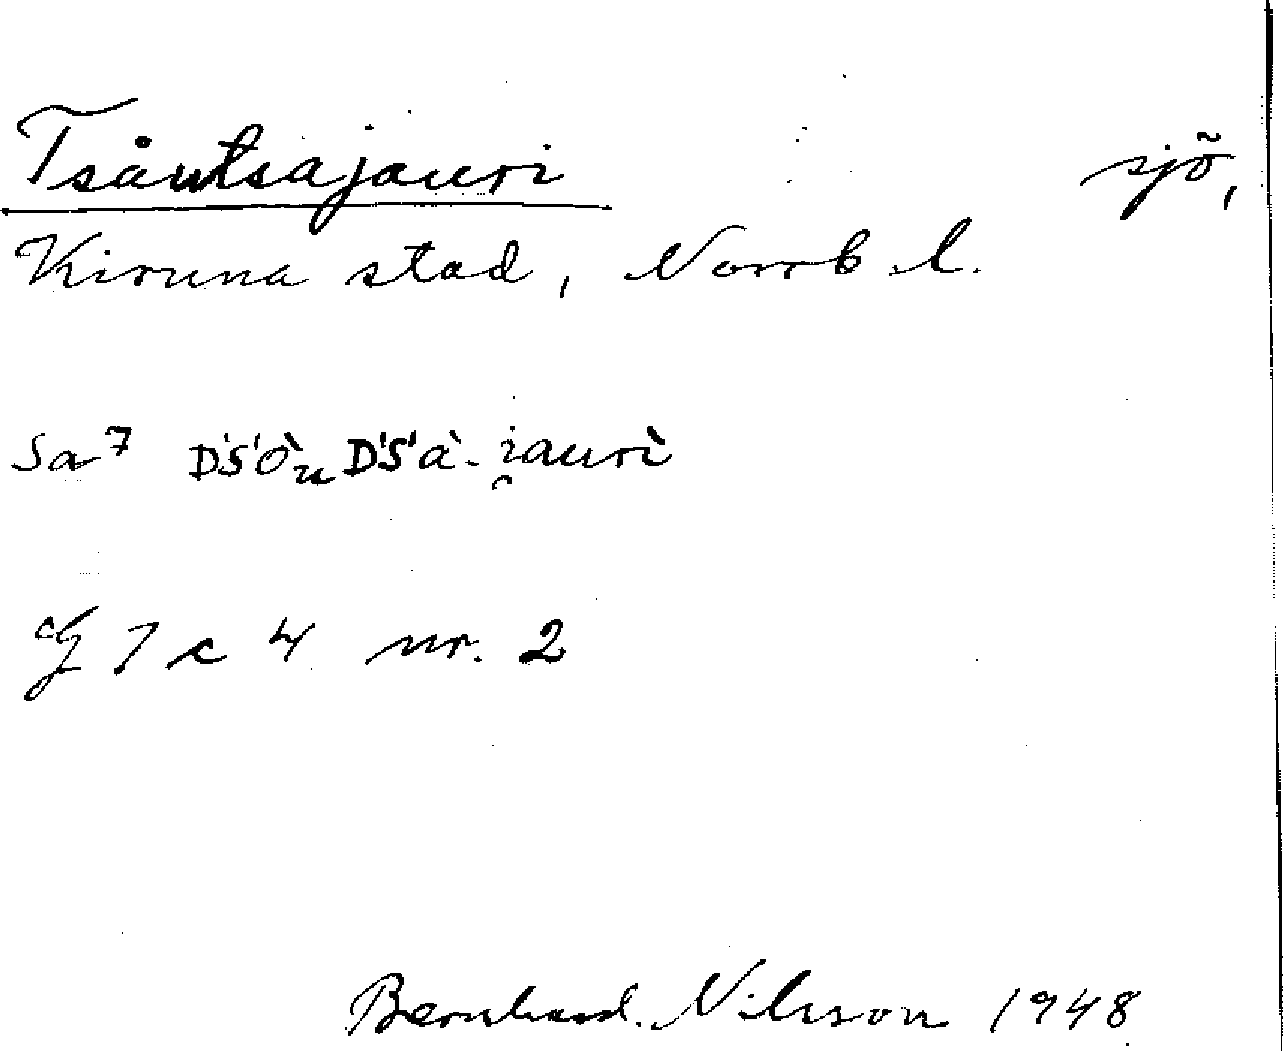 Tsåutsajauri sjö,
Kiruna stad, Norrb. l.
Sa7 D'S'ò̀u D'S'à- i̯aurì
G 7 c 4 nr. 2
Bernhard Nilsson 1948